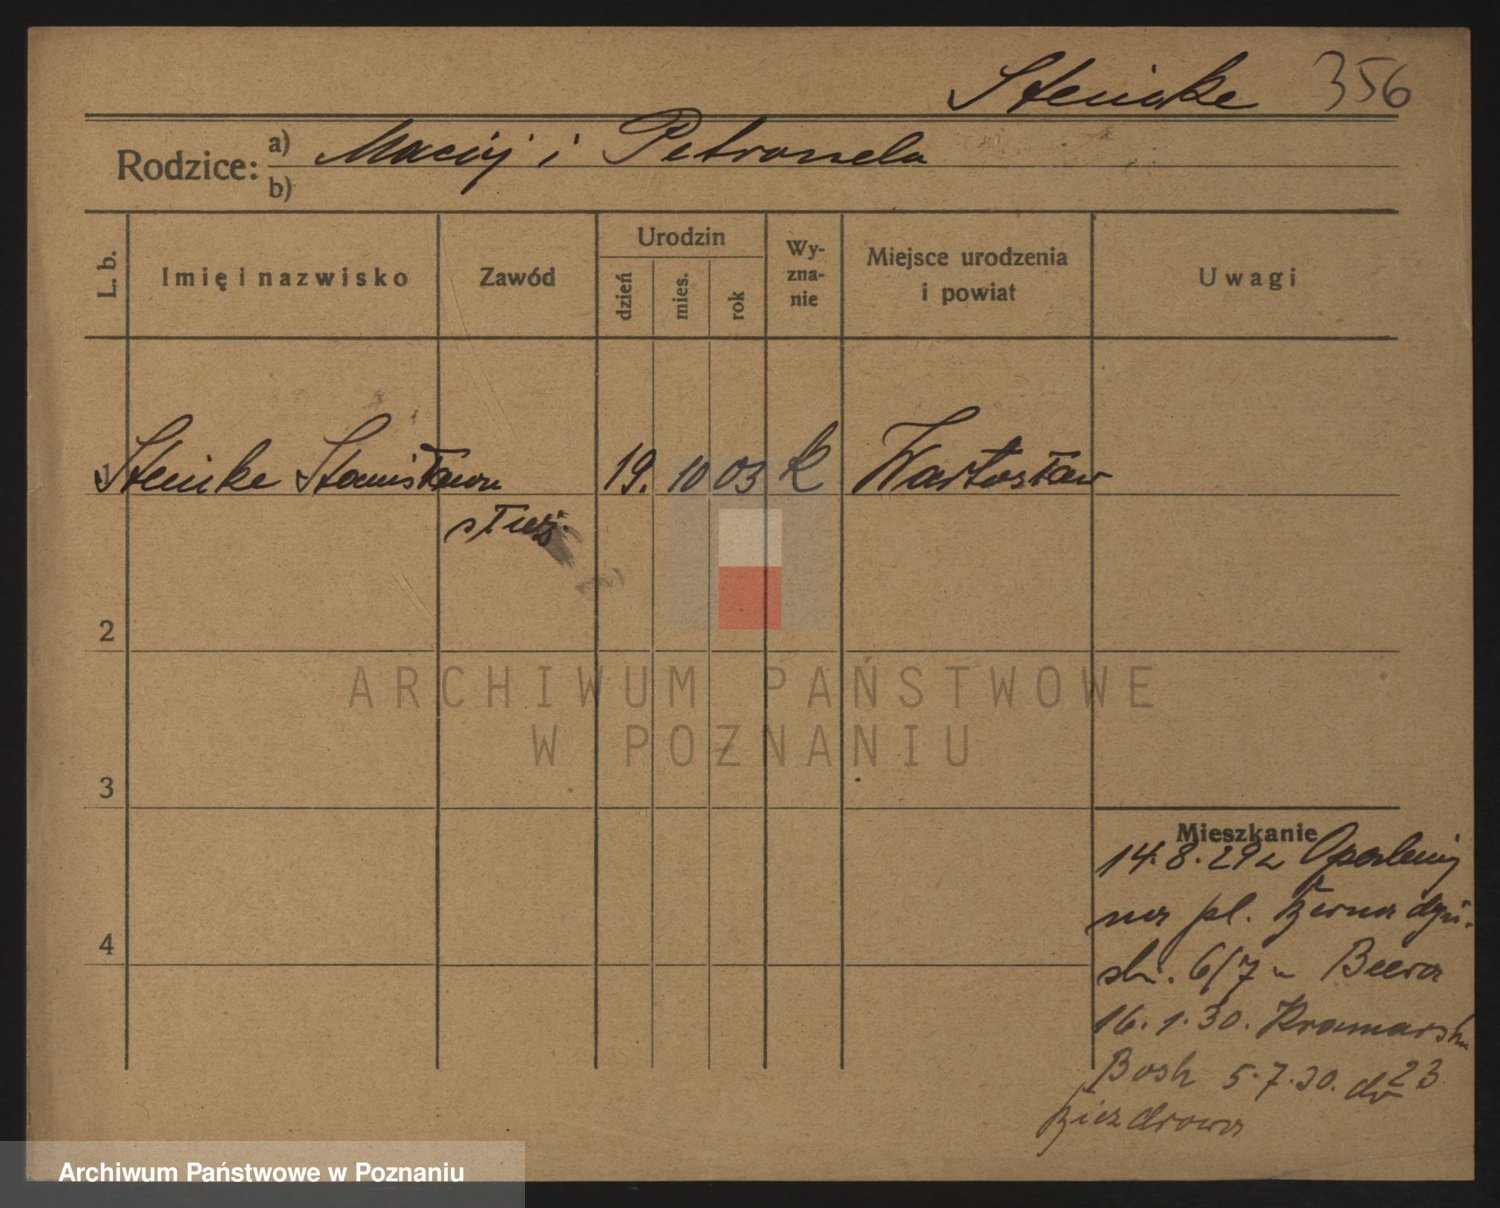 Steinke 356
Rodzice: a) Maciej i Petronela
b)
L. b. Imię i nazwisko Zawód Urodzin dzień mies. rok Wyznanie Miejsce urodzenia i powiat Uwagi
1 Steinke Stanisława 19. 10 03 k Wartosław
służ.
2
ARCHIWUM PAŃSTWOWE
W POZNANIU
3
Mieszkanie
14.8.29 z
na pl.
6/7
16.1.30. Kramarska
5.7.30. do 23
Biezdrowa
4
Archiwum Państwowe w Poznaniu